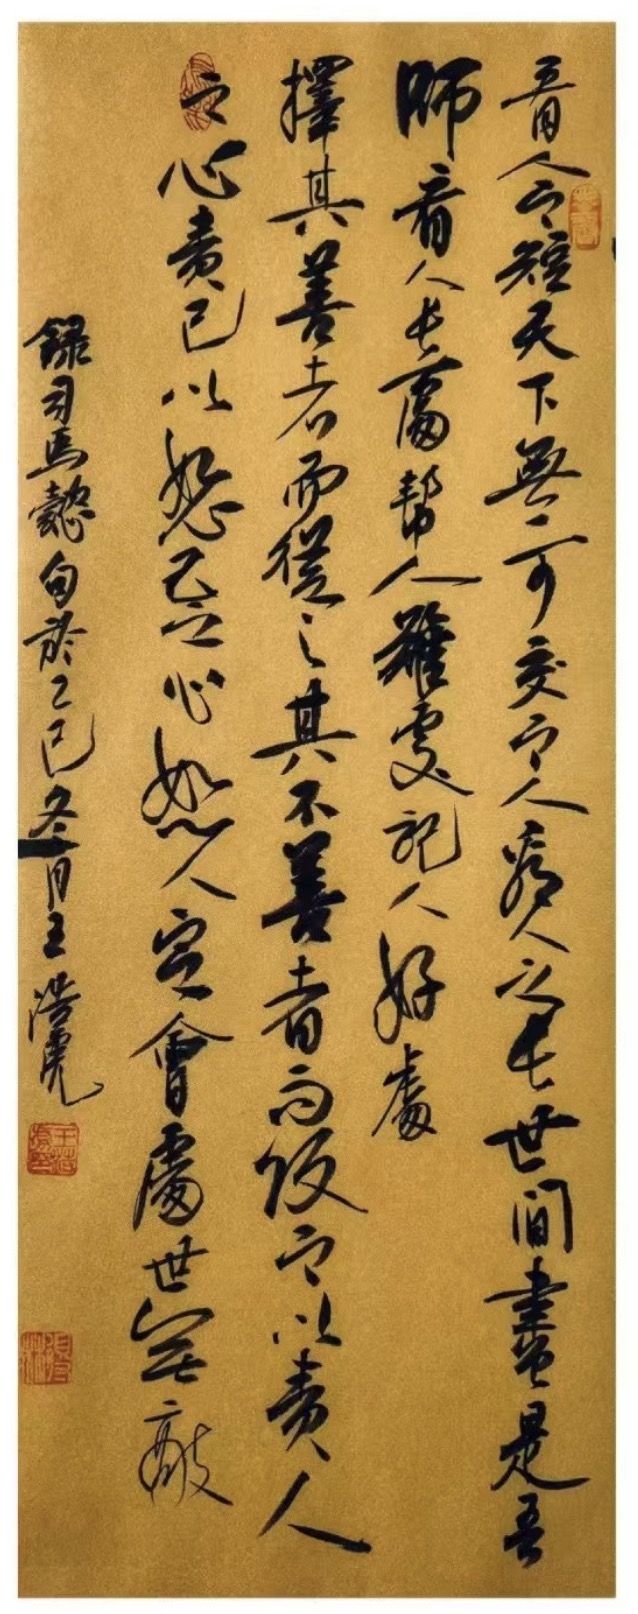 看人之短天下無一可交之人看人之長世間盡是吾
師看人長處幫人難處記人好處
擇其善者而從之其不善者而改之以責人
之心責己以恕己之心恕人定會處世無敵
錄司馬懿句於乙巳冬月王浩虎